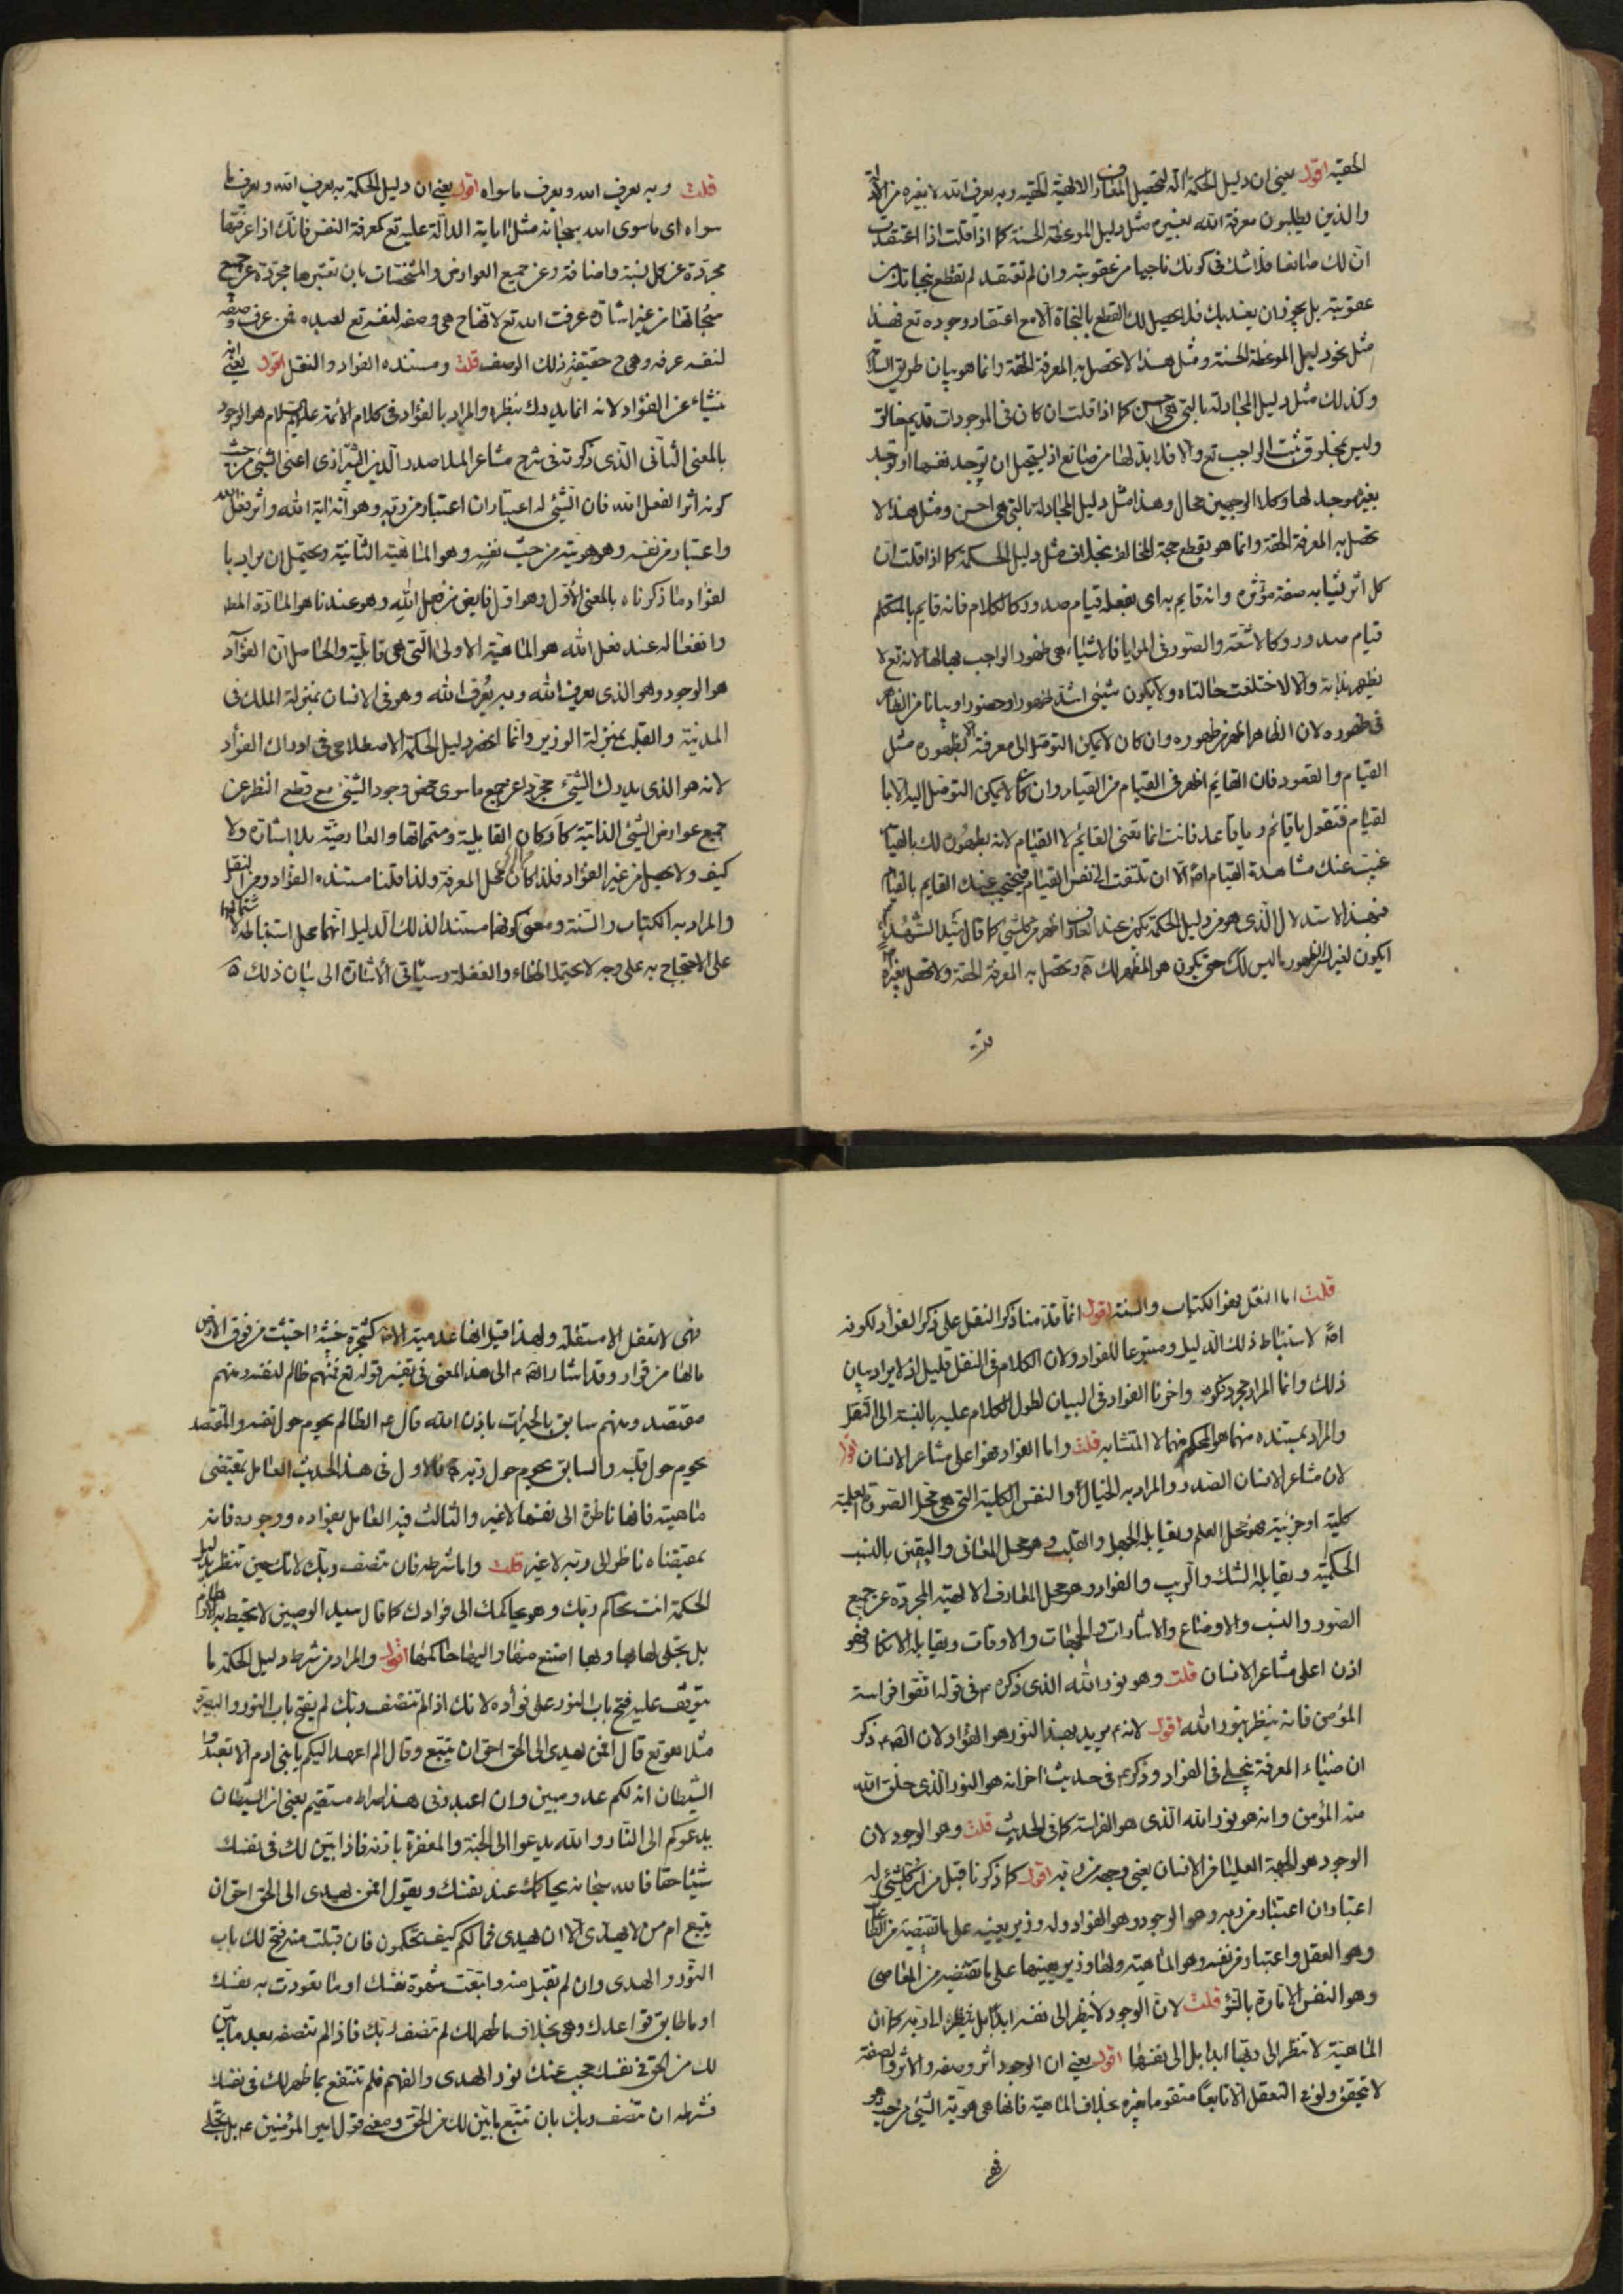 الحقية اقول يعنى ان دليل الحكمة آلة لتحصيل المعارف الالهية الحقيه وبه يعرف الله لا بغيره من الادلة
والذين يطلبون معرفة الله بغيره مثل دليل الموعظة الحسنة كما اذا قلت اذا اعتقدت
ان لك صانعا فلا شك فى كونك ناجيا من عقوبته وان لم تعتقد لم تقطع بنجاتك من
عقوبته بل يجوز ان يعذبك فلا يحصل لك القطع بالنجاة الا مع اعتقاد وجوده تع فهذا
مثل نحو دليل الموعظة الحسنة ومثل هذا لا تحصل به المعرفة الحقة وانما هو بيان طريق السلامة
وكذلك مثل دليل المجادلة بالتى هى احسن كما اذا قلت ان كان فى الموجودات قديم خالق
وليس بمخلوق ثبت الواجب تع والا فلا بد لها من صانع اذ يستحيل ان توجد نفسها او توجد
بغير موجد لها وكلا الوجهين محال وهذا مثل دليل المجادلة بالتى هى احسن ومثل هذا لا
تحصل به المعرفة الحقة وانما هو يقطع حجة المخالف بخلاف مثل دليل الحكمة كما اذا قلت ان
كل اثر يشابه صفة مؤثره وانه قايم به اى بفعله قيام صدور كالكلام فانه قايم بالمتكلم
قيام صدور وكالاشعة والصور فى المرايا فالاشياء هى ظهور الواجب بها لها لانه تع لا
يظهر بذاته والا لاختلفت حالتاه ولا يكون شيئى اشد ظهورا وحضورا وبيانا من الظاهر
فى ظهوره لان الظاهر اظهر من ظهوره وان كان لا يمكن التوصل الى معرفته الا بظهوره مثل
القيام والقعود فان القائم اظهر فى القيام من القيام وان كان لا يمكن التوصل اليه الا با
لقيام فتقول يا قائم ويا قاعد فانت انما تعنى القائم لا القيام لانه بظهوره لك بالقيام
غيب عنك مشاهدة القيام اصلا الا ان تلتفت الى نفس القيام فيحتجب عنك القايم بالقيام
فبهذا الاستدلال الذى هو من دليل الحكمة يكون عند العارف اظهر من كلشيى كما قال سيد الشهداء
ايكون لغيرك من الظهور ما ليس لك حتى يكون هو المظهر لك وتحصل به المعرفة الحقة ولا تحصل بغيره
قلت
قلت وبه يعرف الله ويعرف ما سواه اقول يعنى ان دليل الحكمة به يعرف الله ويعرف ما
سواه اى ما سوى الله سبحانه مثل اياته الدالة عليه تع كمعرفة النفس فانك اذا عرفتها
مجردة عن كل نسبة واضافة وعن جميع العوارض والمشخصات بان تعتبرها مجردة عن جميع
سبحاتها من غير اشارة عرفت الله تع لانها ح هى وصفه لنفسه تع لعبده فمن عرف وصفه
لنفسه عرفه وهى ح حقيقة ذلك الوصف قلت ومستنده الفواد والنقل اقول يعنى انه
ينشاء عن الفؤاد لانه انما يدرك بنظره والمراد بالفؤاد فى كلام الائمة عليهم السلام هو الوجود
بالمعنى الثانى الذى ذكرته فى شرح مشاعر الملا صدر الدين الشيرازى اعنى الشيئ من حيث
كونه اثرا لفعل الله فان الشيئى له اعتباران اعتبار من ربه وهو انه اية الله واثر فعل الله
واعتبار من نفسه وهو هويته من حيث نفسه وهو الماهية الثانية ويحتمل ان يراد با
لفواد ما ذكرناه بالمعنى الاول وهو اول فايض من فعل الله وهو عندنا هو المادة المطلقة
وانفعاله عند فعل الله هو الماهية الاولى التى هى قابلية والحاصل ان الفؤاد
هو الوجود وهو الذى يعرف الله وبه يُعرف الله وهو فى الانسان بمنزلة الملك فى
المدينة والقلب بمنزلة الوزير وانما انحصر دليل الحكمة الاصطلاحى فى ادراك الفؤاد
لانه هو الذى يدرك الشيئ مجردا عن جميع ما سوى محض وجود الشيئ مع قطع النظر عن
جميع عوارض الشيئ الذاتية كاركان القابلية ومتمماتها والعارضية بلا اشارة ولا
كيف ولا يحصل من غير الفؤاد فلذا كان محل المعرفة ولذا قلنا مستنده الفؤاد ومن النقل
والمراد به الكتاب والسنة ومعنى كونهما مستندا لذلك الدليل انهما محل استنباطه
على الاحتجاج به على وجه لا يحتمل الخطاء والغفلة وسياتى الاشارة الى بيان ذلك
قلت اما النقل فهو الكتاب والسنة اقول انما قدمنا ذكر النقل على ذكر الفواد لكونه
اصلا لاستنباط ذلك الدليل ومتبوعا للفواد ولان الكلام فى النقل قليل اذ لا يراد بيان
ذلك وانما المراد مجرد ذكره واخرنا الفواد فى البيان لطول الكلام عليه بالنسبة الى النقل
والمراد بمستنده منهما هو المحكم منهما لا المتشابه قلت واما الفواد فهو اعلى مشاعر الانسان اقول
لان مشاعر الانسان الصدر والمراد به الخيال او النفس الكلية التى هى محل الصور العلمية
كلية او جزئية فهو محل العلم ويقابله الجهل والقلب وهو محل المعانى واليقين بالنسب
الحكمية ويقابله الشك والريب والفواد وهو محل المعارف الالهية المجردة عن جميع
الصور والنسب والاوضاع والاشارات والجهات والاوقات ويقابله الانكار فهو
اذن اعلى مشاعر الانسان قلت وهو نور الله الذى ذكره فى قوله اتقوا فراسة
المؤمن فانه ينظر بنور الله اقول لانه يريد بهذا النور هو الفؤاد لان الصم ذكر
ان ضياء المعرفة ينجلى فى الفواد وذكر فى حديث اخر انه هو النور الذى خلق الله
منه المؤمن وانه هو نور الله الذى هو الفراسة كما فى الحديث قلت وهو الوجود لان
الوجود هو الجهة العليا من الانسان يعنى وجهه من ربه اقول كما ذكرنا قبل من ان كلشيئى له
اعتباران اعتبار من ربه وهو الوجود وهو الفواد وله وزير يعينه على ما يقتضيه من الطاعات
وهو العقل واعتبار من نفسه وهو الماهية ولها وزير يعينها على ما تقتضيه من المعاصى
وهو النفس الامارة بالسؤ قلت لان الوجود لا ينظر الى نفسه ابدا بل ينظر الى ربه كما ان
الماهية لا تنظر الى ربها ابدا بل الى نفسها اقول يعنى ان الوجود اثر وصفه والاثر والصفة
لا يتحقق ولو فى التعقل الا تابعا متقوما بغيره بخلاف الماهية فانها هى هوية الشيئى من حيث هو
فهى
فهى لا تعقل الا مستقلة ولهذا قيل انها عدمية الاصل كشجرة خبيثة اجتثت من فوق الارض
مالها من قرار وقد اشار الصم الى هذا المعنى فى تفسير قوله تع فمنهم ظالم لنفسه ومنهم
مقتصد ومنهم سابق بالخيرات باذن الله قال ع الظالم يحوم حول نفسه والمقتصد
يحوم حول قلبه والسابق يحوم حول ربه فالاول فى هذا الحديث العامل بمقتضى
ماهيته فانها ناظرة الى نفسها لا غير والثالث فيه العامل بفواده ووجوده فانه
بمقتضاه ناظر الى ربه لا غير قلت واما شرطه فان تنصف ربك لانك حين تنظر بدليل
الحكمة انت تحاكم ربك وهو يحاكمك الى فوادك كما قال سيد الوصيين لا تحيط به الاوهام
بل تجلى لها بها وبها امتنع منها واليها حاكمها اقول والمراد من شرط دليل الحكمة ما
يتوقف عليه فتح باب النور على فوأده لانك اذا لم تنصف ربك لم يفتح باب النور والبصيرة
مثلا هو تع قال افمن يهدى الى الحق احق ان يتبع وقال الم اعهد اليكم يا بنى ادم الا تعبدوا
الشيطان انه لكم عدو مبين وان اعبدونى هذا صراط مستقيم يعنى ان الشيطان
يدعوكم الى النار والله يدعوا الى الجنة والمغفرة باذنه فاذا تبين لك فى نفسك
شيئا حقا فالله سبحانه يحاكمك عند نفسك ويقول افمن يهدى الى الحق احق ان
يتبع ام من لا يهدى الا ان يهدى فما لكم كيف تحكمون فان قبلت منه فتح لك باب
النور والهدى وان لم تقبل منه واتبعت شهوة نفسك او ما تعودت به نفسك
او ما طابق قواعدك وهى بخلاف ما ظهر لك لم تنصف ربك فاذا لم تنصفه بعد ما تبين
لك من الحق فى نفسك حجب عنك نور الهدى والفهم فلم تنتفع بما ظهر لك فى نفسك
فشرطه ان تنصف ربك بان تتبع ما تبين لك من الحق ومعنى قول امير المؤمنين ع بل تجلى